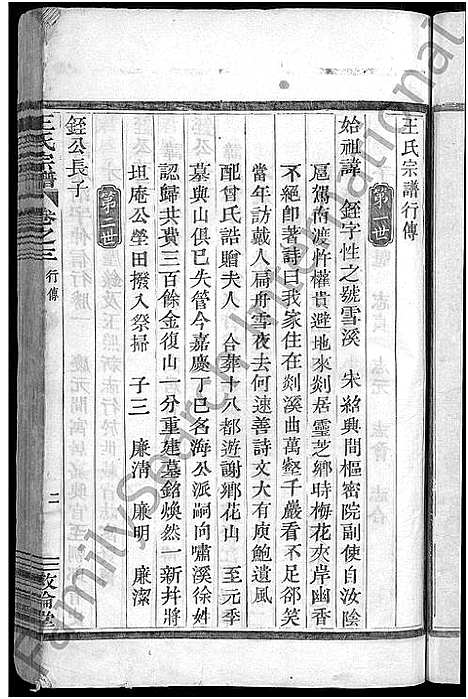 王氏宗譜行傳
第一世
始祖諱 銍字性之號雪溪 宋紹興間樞密院副使自汝陰
扈駕南渡忤權貴避地來剡居靈芝鄉時梅花夾岸幽香
不絕卽著詩曰我家住在剡溪曲萬壑千巖看不足卻笑
當年訪戴人扁舟雪夜去何速善詩文大有庾鮑遺風
配曾氏誥贈夫人 合葬十八都遊謝鄉花山 至元季
墓與山俱已失管今嘉慶丁巳名海公派嗣向嘯溪徐姓
認歸共費三百餘金復山一分重建墓銘煥然一新并將
坦庵公塋田撥入祭掃 子三 廉清 廉明 廉潔
第二世
銍公長子
王氏宗譜 卷之三 行傳 二 敦倫堂
FamilySearch International